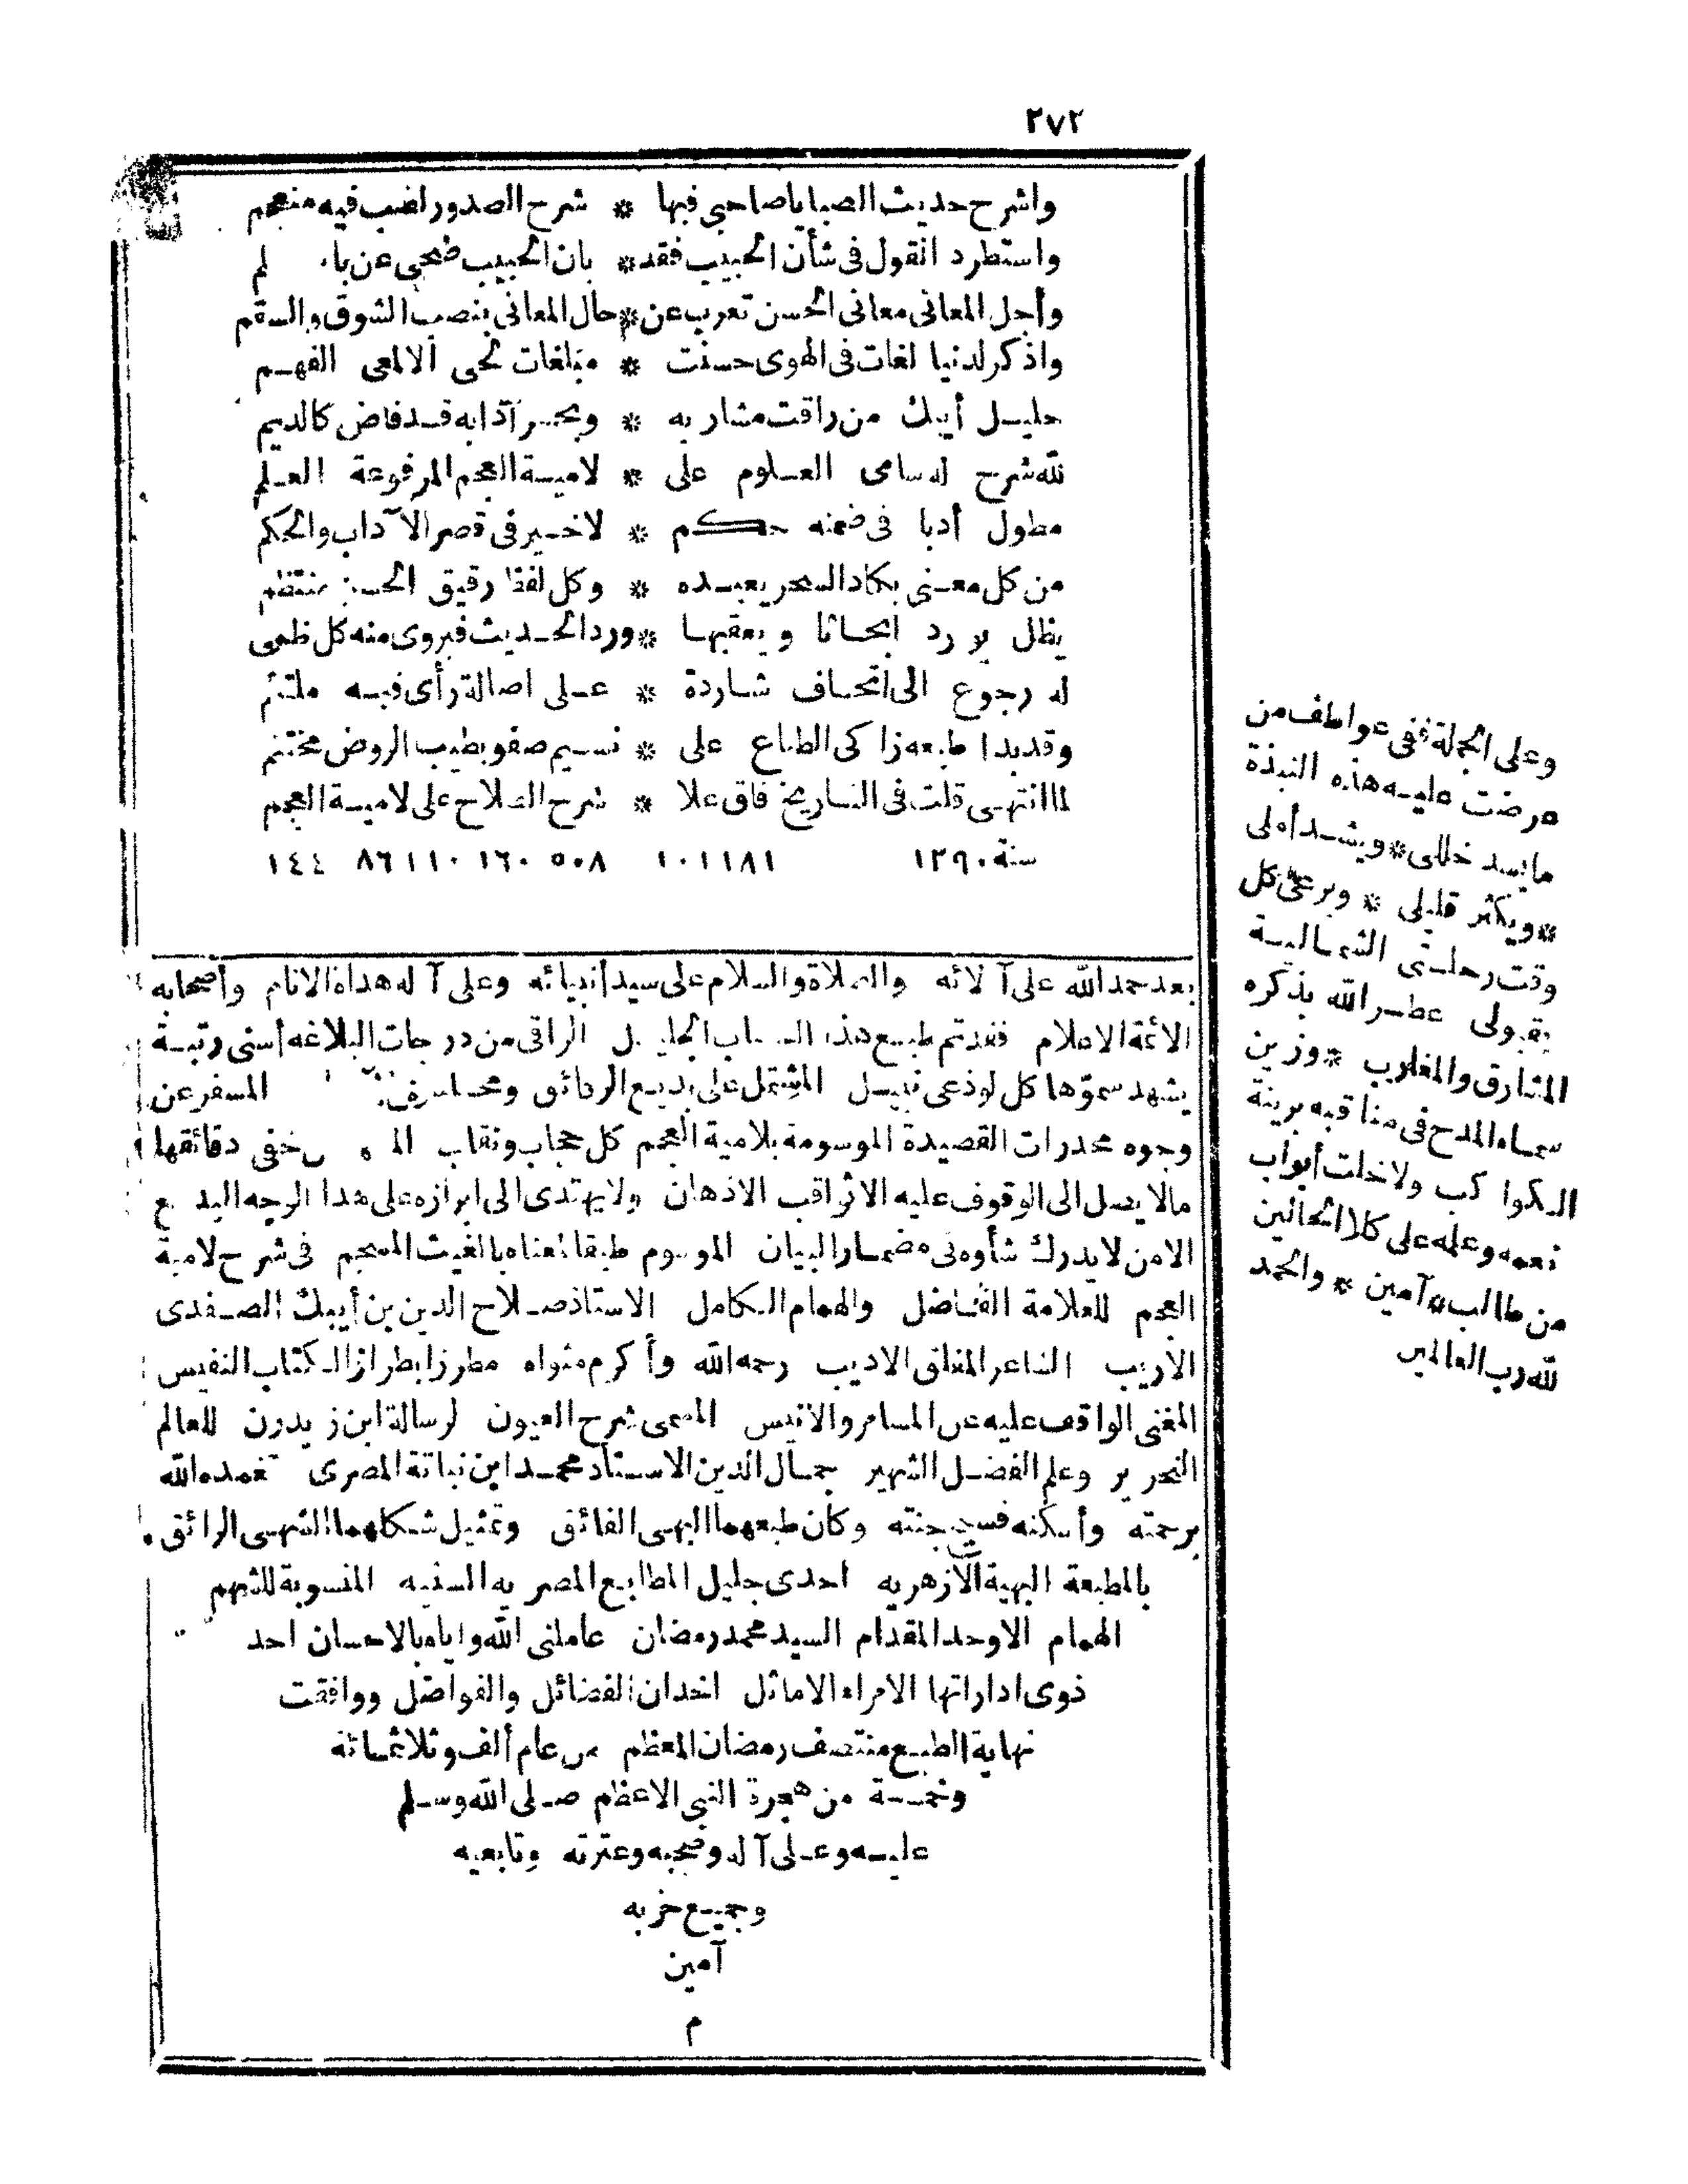 ٢٧٢
واشرح حديث الصبا يا صاحبي فبها * شرح الصدور لصب فيه منعجم
واستطرد القول فى شأن الحبيب فقد * بان الحبيب ضحى عن بان لم
وأجل المعانى معانى الحسن تعرب عن * حال المعانى بنصب الشوق والسقم
واذكر لدنيا لغات فى الهوى حسنت * مبلغات نحى الالمعى الفهم
خليل أيبك من راقت مشاربه * وبحر آدابه قد فاض كالديم
لله شرح له سامى العلوم على * لامية العجم المرفوعة العلم
مطول أدبا فى ضمنه حكم * لا خير فى قصر الآداب والحكم
من كل معنى يكاد السحر يعبده * وكل لفظ رقيق الحسن منتظم
يظل يورد ابحاثا ويعقبها * ورد الحديث فيروى منه كل ظمى
له رجوع الى اتحاف شاردة * على اصالة رأى فيه ملتئم
وقد بدا طبعه زاكى الطباع على * نسيم صفو بطيب الروض مختتم
لما انتهى قلت فى التاريخ فاق علا * شرح الصلاح على لامية العجم
سنة ١٢٩٠ ١٨١ ١٠١ ٥٠٨ ١٦٠ ١١٠ ٨٦ ١٤٤
بعد حمد الله على آلائه والصلاة والسلام على سيد أنبيائه وعلى آله هداة الانام وأصحابه
الائمة الاعلام فقد تم طبع هذا الجليل الراقى من درجات البلاغه أسنى رتبة
يشهد سموّها كل لوذعى نبيل المشتمل على بديع الرقائق المسفر عن
وجوه مخدرات القصيدة الموسومة بلامية العجم كل حجاب ونقاب خفى دقائقها
مالا يصل الى الوقوف عليه الا ثواقب الاذهان ولا يهتدى الى ابرازه على هذا الوجه البديع
الا من لا يدرك شأوه فى مضمار البيان الموسوم طبقا لمعناه بالغيث المسجم فى شرح لامية
العجم للعلامة الفاضل والهمام الكامل الاستاذ صلاح الدين بن أيبك الصفدى
الاريب الشاعر المفلق الاديب رحمه الله وأكرم مثواه مطرزا بطراز الكتاب النفيس
المغنى الواقف عليه عن المسامر والانيس المسمى شرح العيون لرسالة ابن زيدون للعالم
النحرير وعلم الفضل الشهير جمال الدين الاستاذ محمد ابن نباتة المصرى تغمده الله
برحمته وأسكنه فسيح جنته وكان طبعهما البهى الفائق وتمثيل شكلهما الشهى الرائق
بالمطبعة البهية الازهريه احدى جليل المطابع المصريه السنيه المنسوبة للشهم
الهمام الاوحد المقدام السيد محمد رمضان عاملنى الله واياه بالاحسان احد
ذوى اداراتها الامراء الاماثل اخدان الفضائل والفواضل ووافقت
نهاية الطبع منتصف رمضان المعظم من عام ألف وثلاثمائة
وخمسة من هجرة النبى الاعظم صلى الله وسلم
عليه وعلى آله وصحبه وعترته وتابعيه
وجميع حزبه
آمين
م
وعلى الجملة ففى عواطف من
عرضت عليه هذه النبذة
ما يسد خللى * ويشد أملى
* ويكثر قليلى * ويرعى كل
وقت رحلتى الشمالية
بقبولى عطر الله بذكره
المشارق والمغارب * وزين
سماء المدح فى مناقبه بزينة
الكواكب ولا خلت أبواب
نعمه وعلمه على كلا الحالين
من طالب * آمين * والحمد
لله رب العالمين